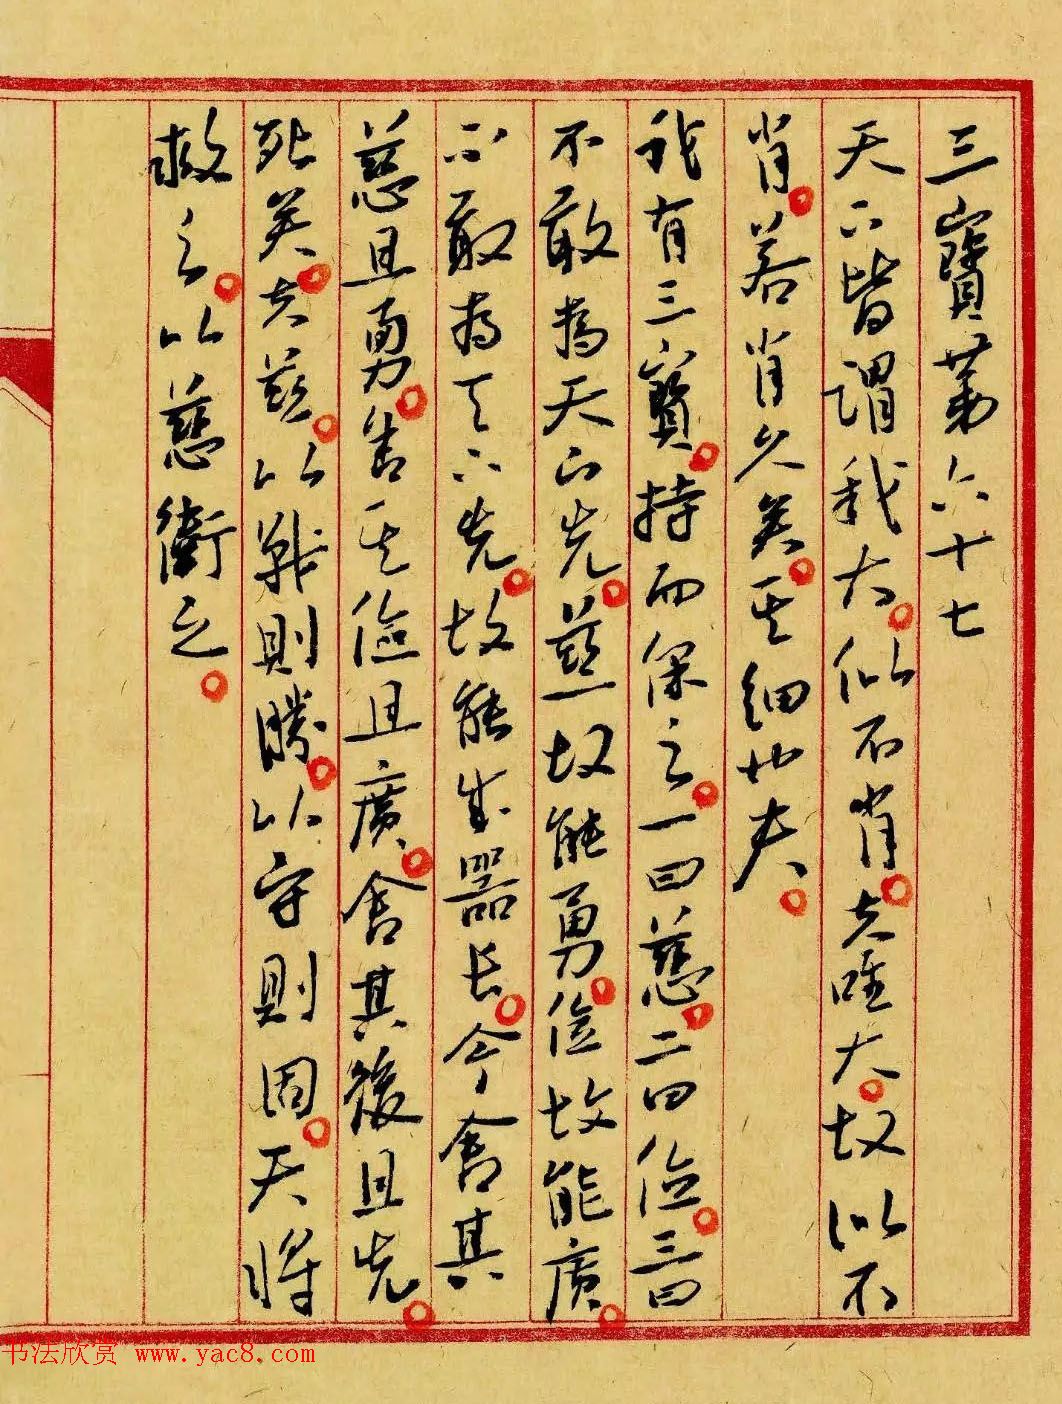 三寶第六十七
天下皆謂我大。似不肖。夫唯大。故似不
肖。若肖久矣。其細也夫。
我有三寶。持而保之。一曰慈。二曰儉。三曰
不敢為天下先。慈故能勇。儉故能廣。
不敢為天下先。故能成器長。今舍其
慈且勇。舍其儉且廣。舍其後且先。
死矣。夫慈。以戰則勝。以守則固。天將
救之。以慈衛之。
书法欣赏 www.yac8.com